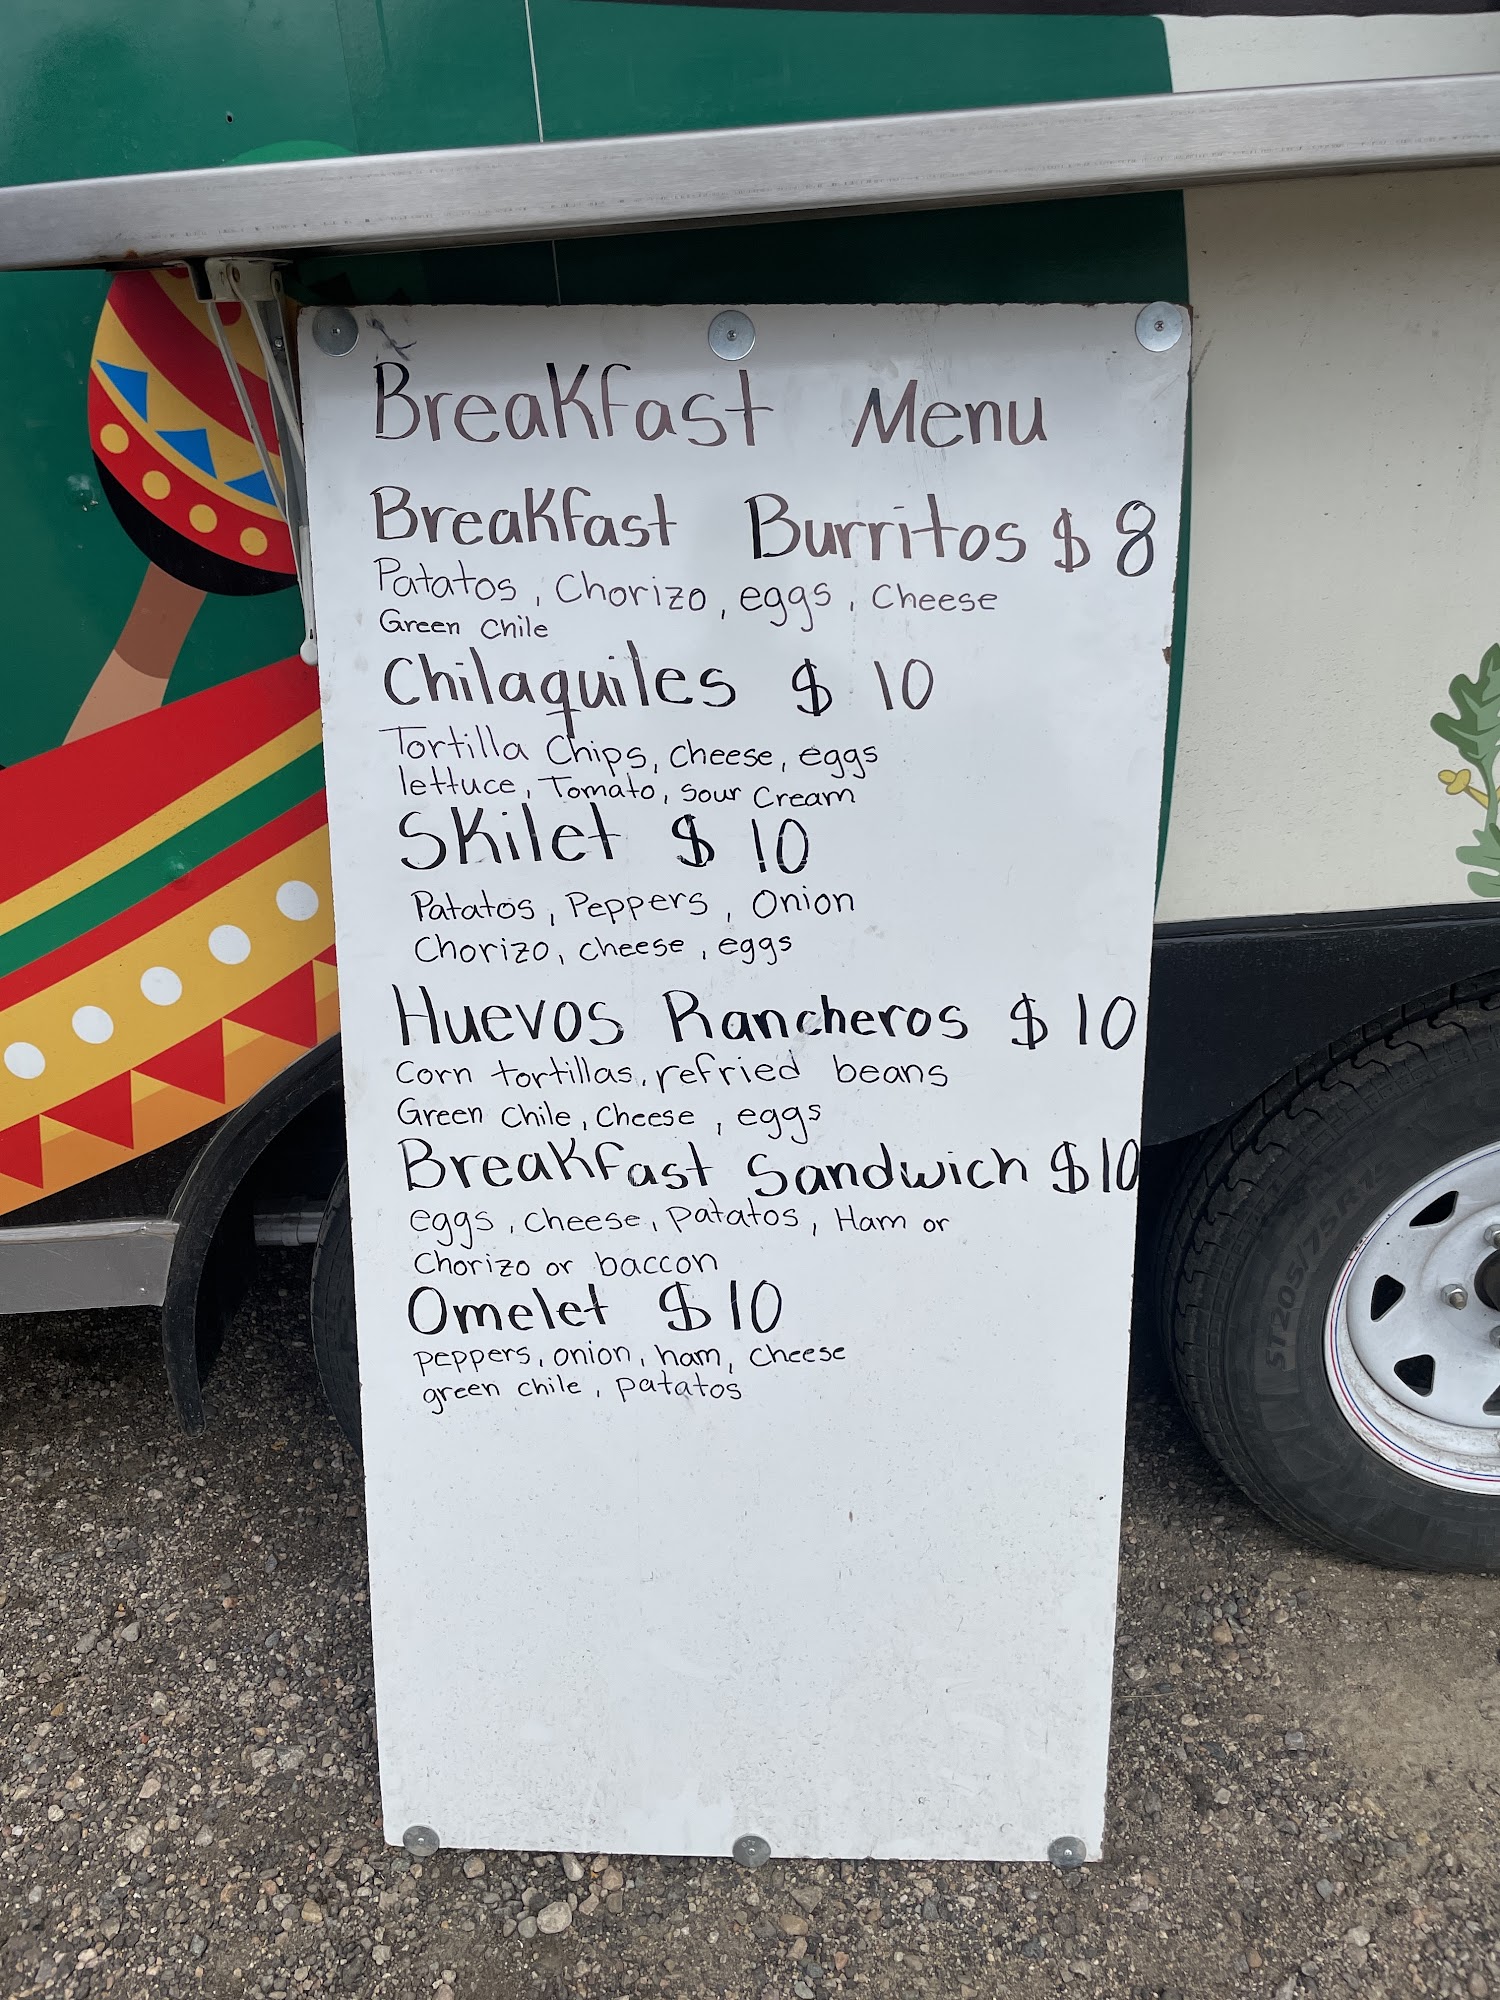 Breakfast Menu
Breakfast Burritos $8
Patatos, Chorizo, eggs, Cheese
Green Chile
Chilaquiles $10
Tortilla Chips, Cheese, eggs
lettuce, Tomato, Sour Cream
Skilet $10
Patatos, Peppers, Onion
Chorizo, cheese, eggs
Huevos Rancheros $10
Corn tortillas, refried beans
Green Chile, Cheese, eggs
Breakfast Sandwich $10
eggs, Cheese, patatos, Ham or
Chorizo or baccon
Omelet $10
peppers, onion, ham, Cheese
green chile, patatos
ST205/75R